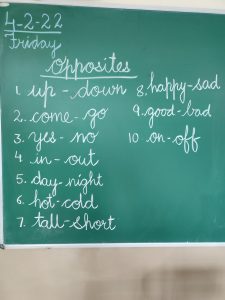 4-2-22
Friday
Opposites
1. up - down
2. come - go
3. yes - no
4. in - out
5. day - night
6. hot - cold
7. tall - short
8. happy - sad
9. good - bad
10. on - off